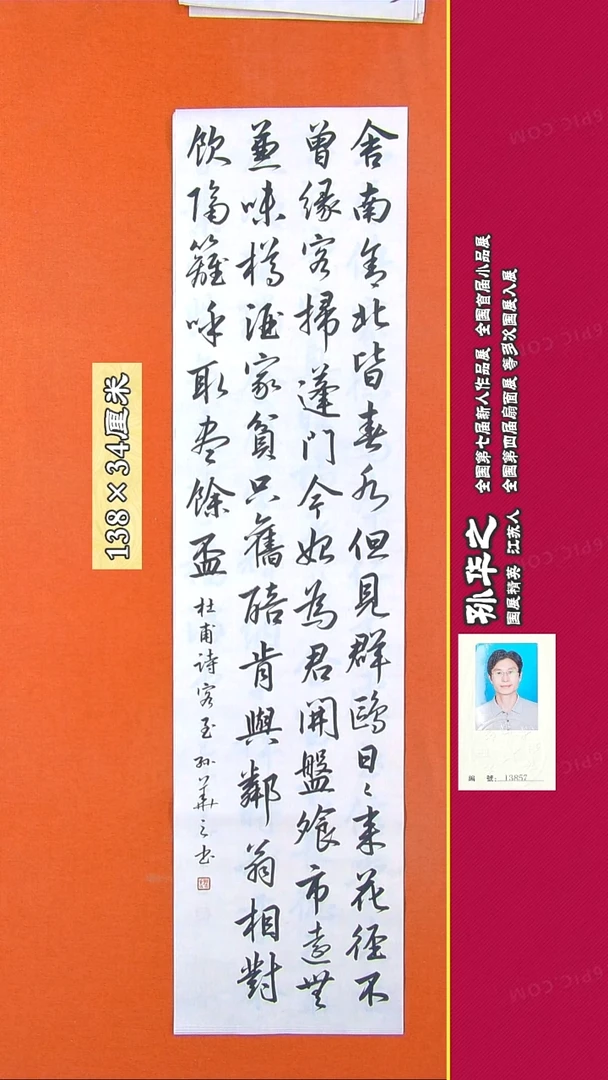 舍南舍北皆春水但見群鷗日〻來花徑不
曾緣客掃蓬門今始為君開盤飱市遠無
兼味樽酒家貧只舊醅肯與鄰翁相對
飲隔籬呼取盡餘盃
杜甫詩客至 孙華之书
138×34厘米
孙华之
全国第七届新人作品展 全国首届小品展
国展精英 江苏人 全国第四届扇面展 等多次国展入展
編 號：13857